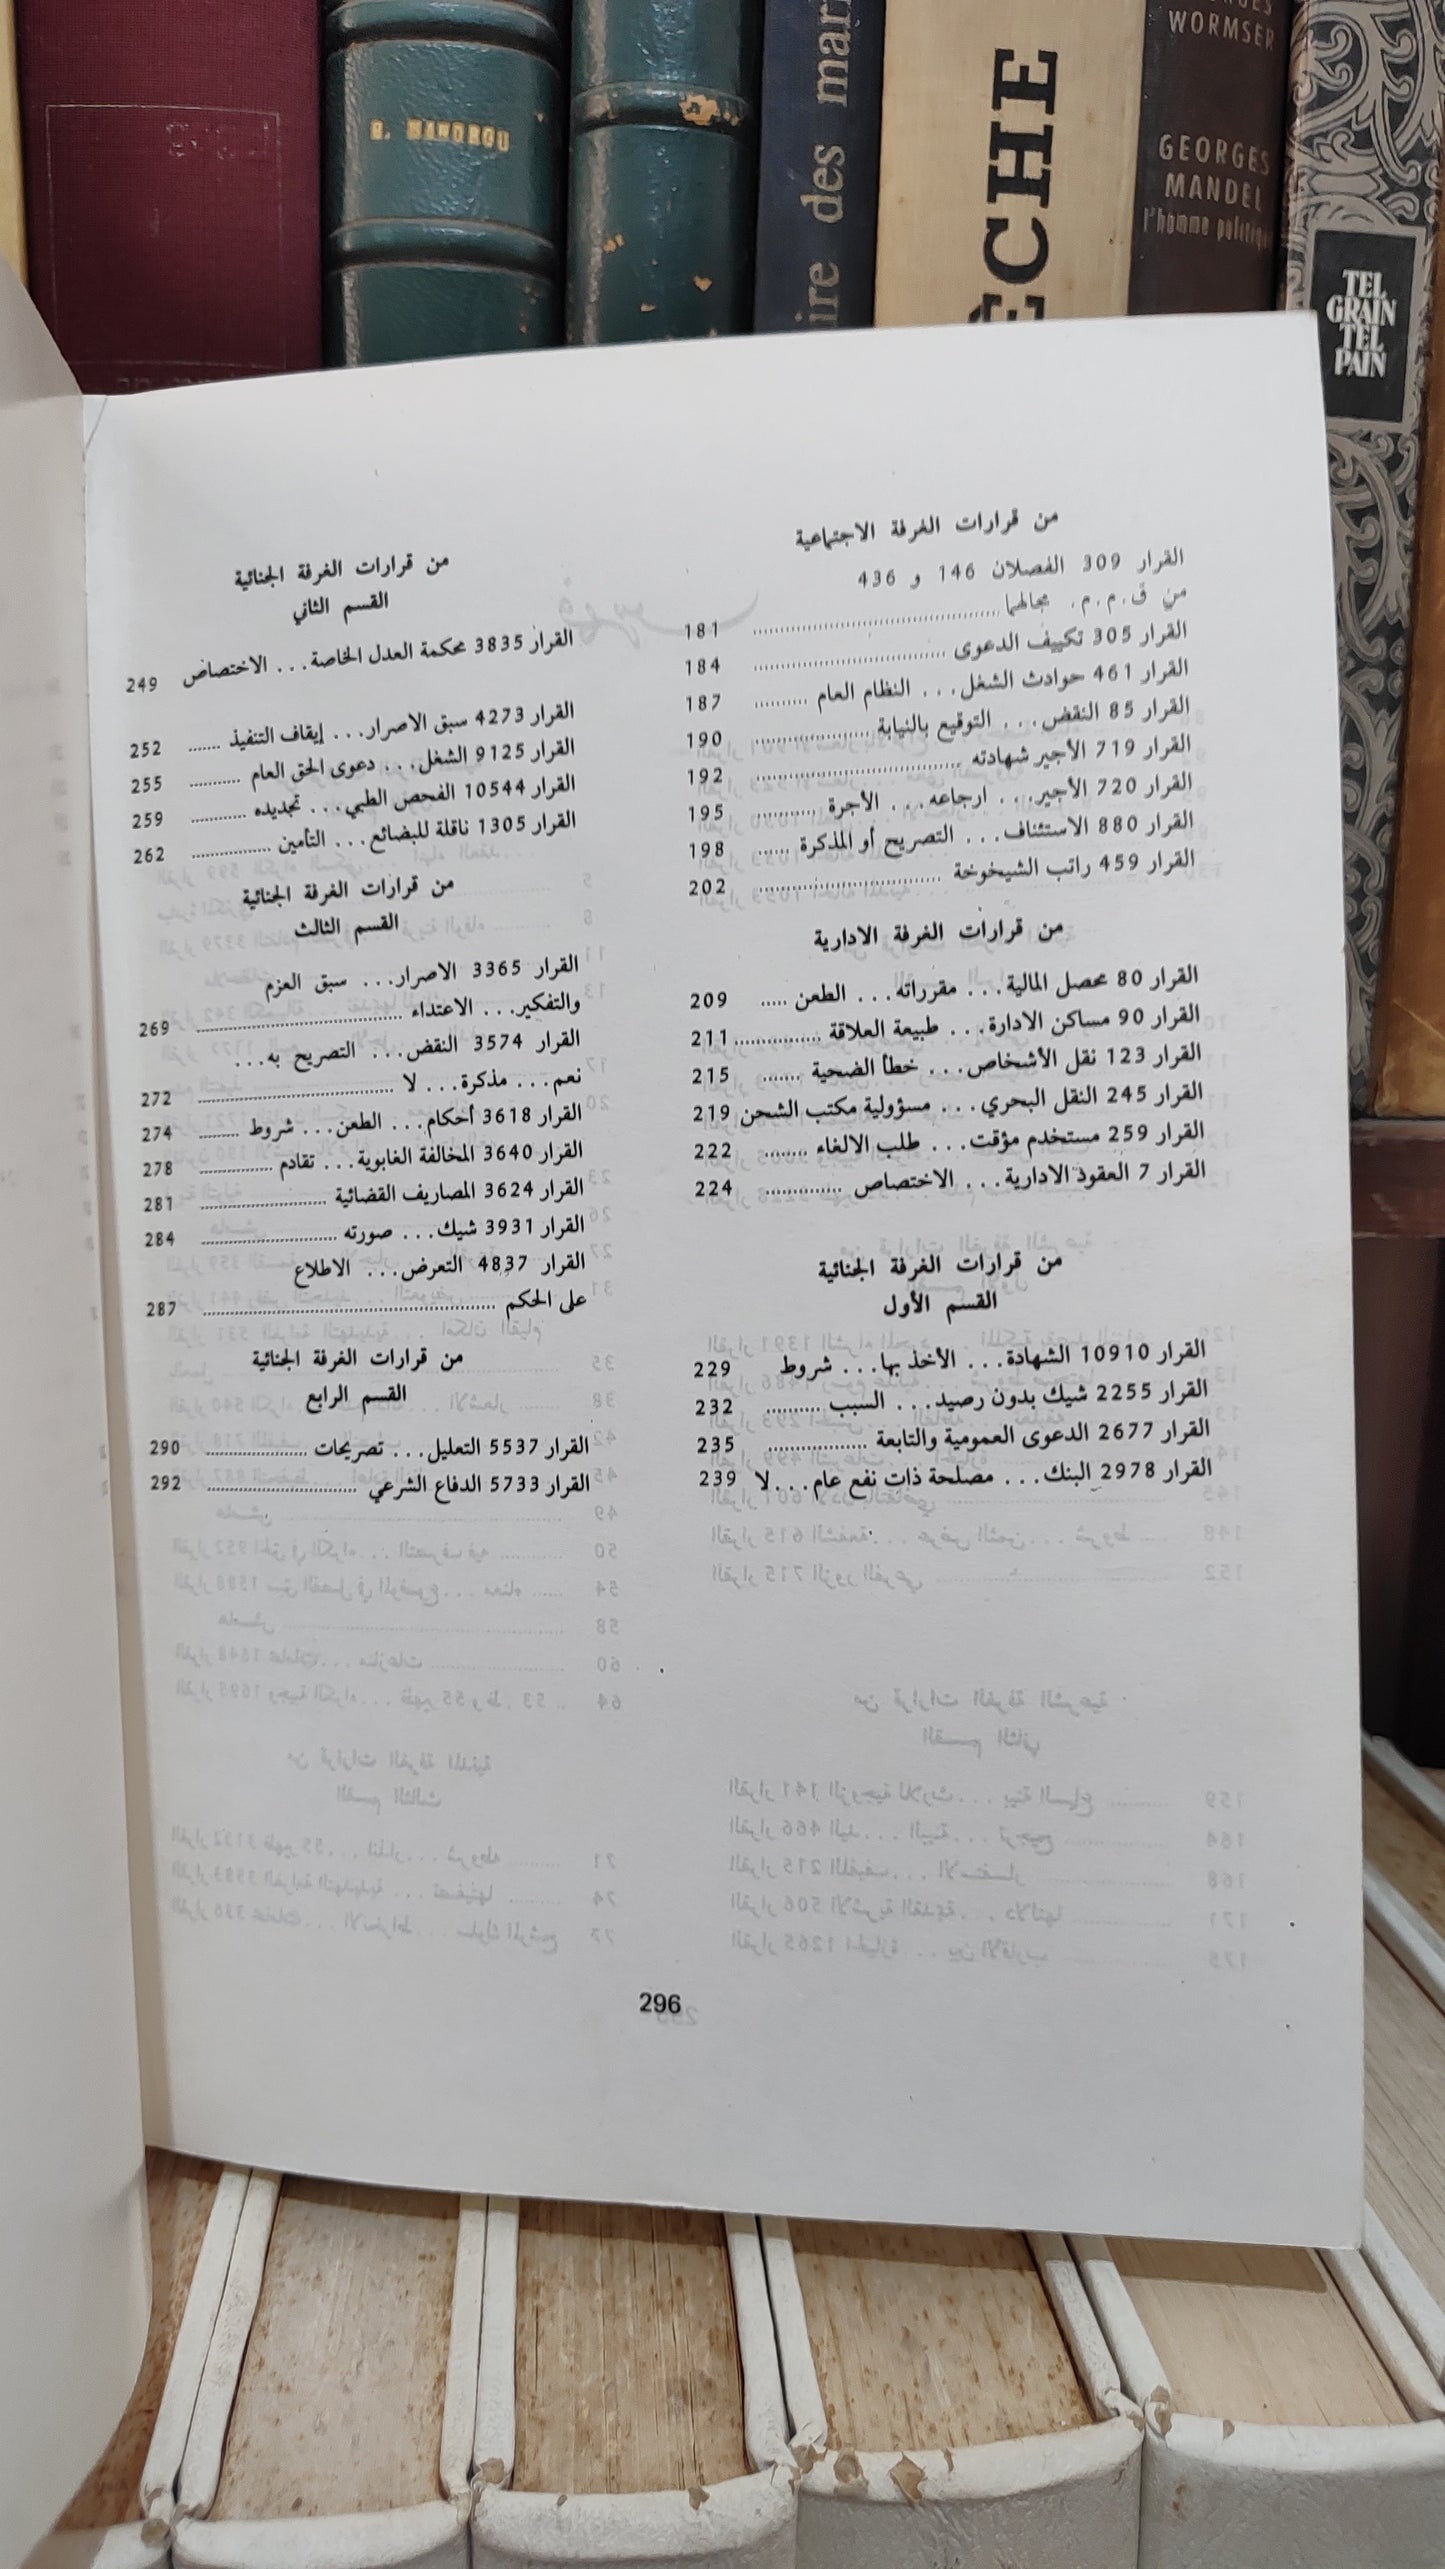 S. MANDROU
ire des mari
ÊCHE
GEORGES WORMSER
GEORGES
MANDEL
l'homme politique
TEL
GRAIN
TEL
PAIN
من قرارات الغرفة الاجتماعية
القرار 309 الفصلان 146 و 436
من ق.م.م. مجالهما .......... 181
القرار 305 تكييف الدعوى .......... 184
القرار 461 حوادث الشغل... النظام العام .......... 187
القرار 85 النقض... التوقيع بالنيابة .......... 190
القرار 719 الأجير شهادته .......... 192
القرار 720 الأجير... ارجاعه... الأجرة .......... 195
القرار 880 الاستئناف... التصريح أو المذكرة ...... 198
القرار 459 راتب الشيخوخة .......... 202
من قرارات الغرفة الادارية
القرار 80 محصل المالية... مقرراته... الطعن ..... 209
القرار 90 مساكن الادارة... طبيعة العلاقة .......... 211
القرار 123 نقل الأشخاص... خطأ الضحية ....... 215
القرار 245 النقل البحري... مسؤولية مكتب الشحن 219
القرار 259 مستخدم مؤقت... طلب الالغاء ........ 222
القرار 7 العقود الادارية... الاختصاص .......... 224
من قرارات الغرفة الجنائية
القسم الأول
القرار 10910 الشهادة... الأخذ بها... شروط 229
القرار 2255 شيك بدون رصيد... السبب .......... 232
القرار 2677 الدعوى العمومية والتابعة .......... 235
القرار 2978 البنك... مصلحة ذات نفع عام...لا 239
من قرارات الغرفة الجنائية
القسم الثاني
القرار 3835 محكمة العدل الخاصة... الاختصاص 249
القرار 4273 سبق الاصرار... إيقاف التنفيذ ...... 252
القرار 9125 الشغل... دعوى الحق العام .......... 255
القرار 10544 الفحص الطبي... تجديده .......... 259
القرار 1305 ناقلة للبضائع... التأمين .......... 262
من قرارات الغرفة الجنائية
القسم الثالث
القرار 3365 الاصرار... سبق العزم
والتفكير... الاعتداء .......... 269
القرار 3574 النقض... التصريح به...
نعم... مذكرة... لا .......... 272
القرار 3618 أحكام... الطعن... شروط ........ 274
القرار 3640 المخالفة الغابوية... تقادم .......... 278
القرار 3624 المصاريف القضائية .......... 281
القرار 3931 شيك... صورته .......... 284
القرار 4837 التعرض... الاطلاع
على الحكم .......... 287
من قرارات الغرفة الجنائية
القسم الرابع
القرار 5537 التعليل... تصريحات .......... 290
القرار 5733 الدفاع الشرعي .......... 292
296